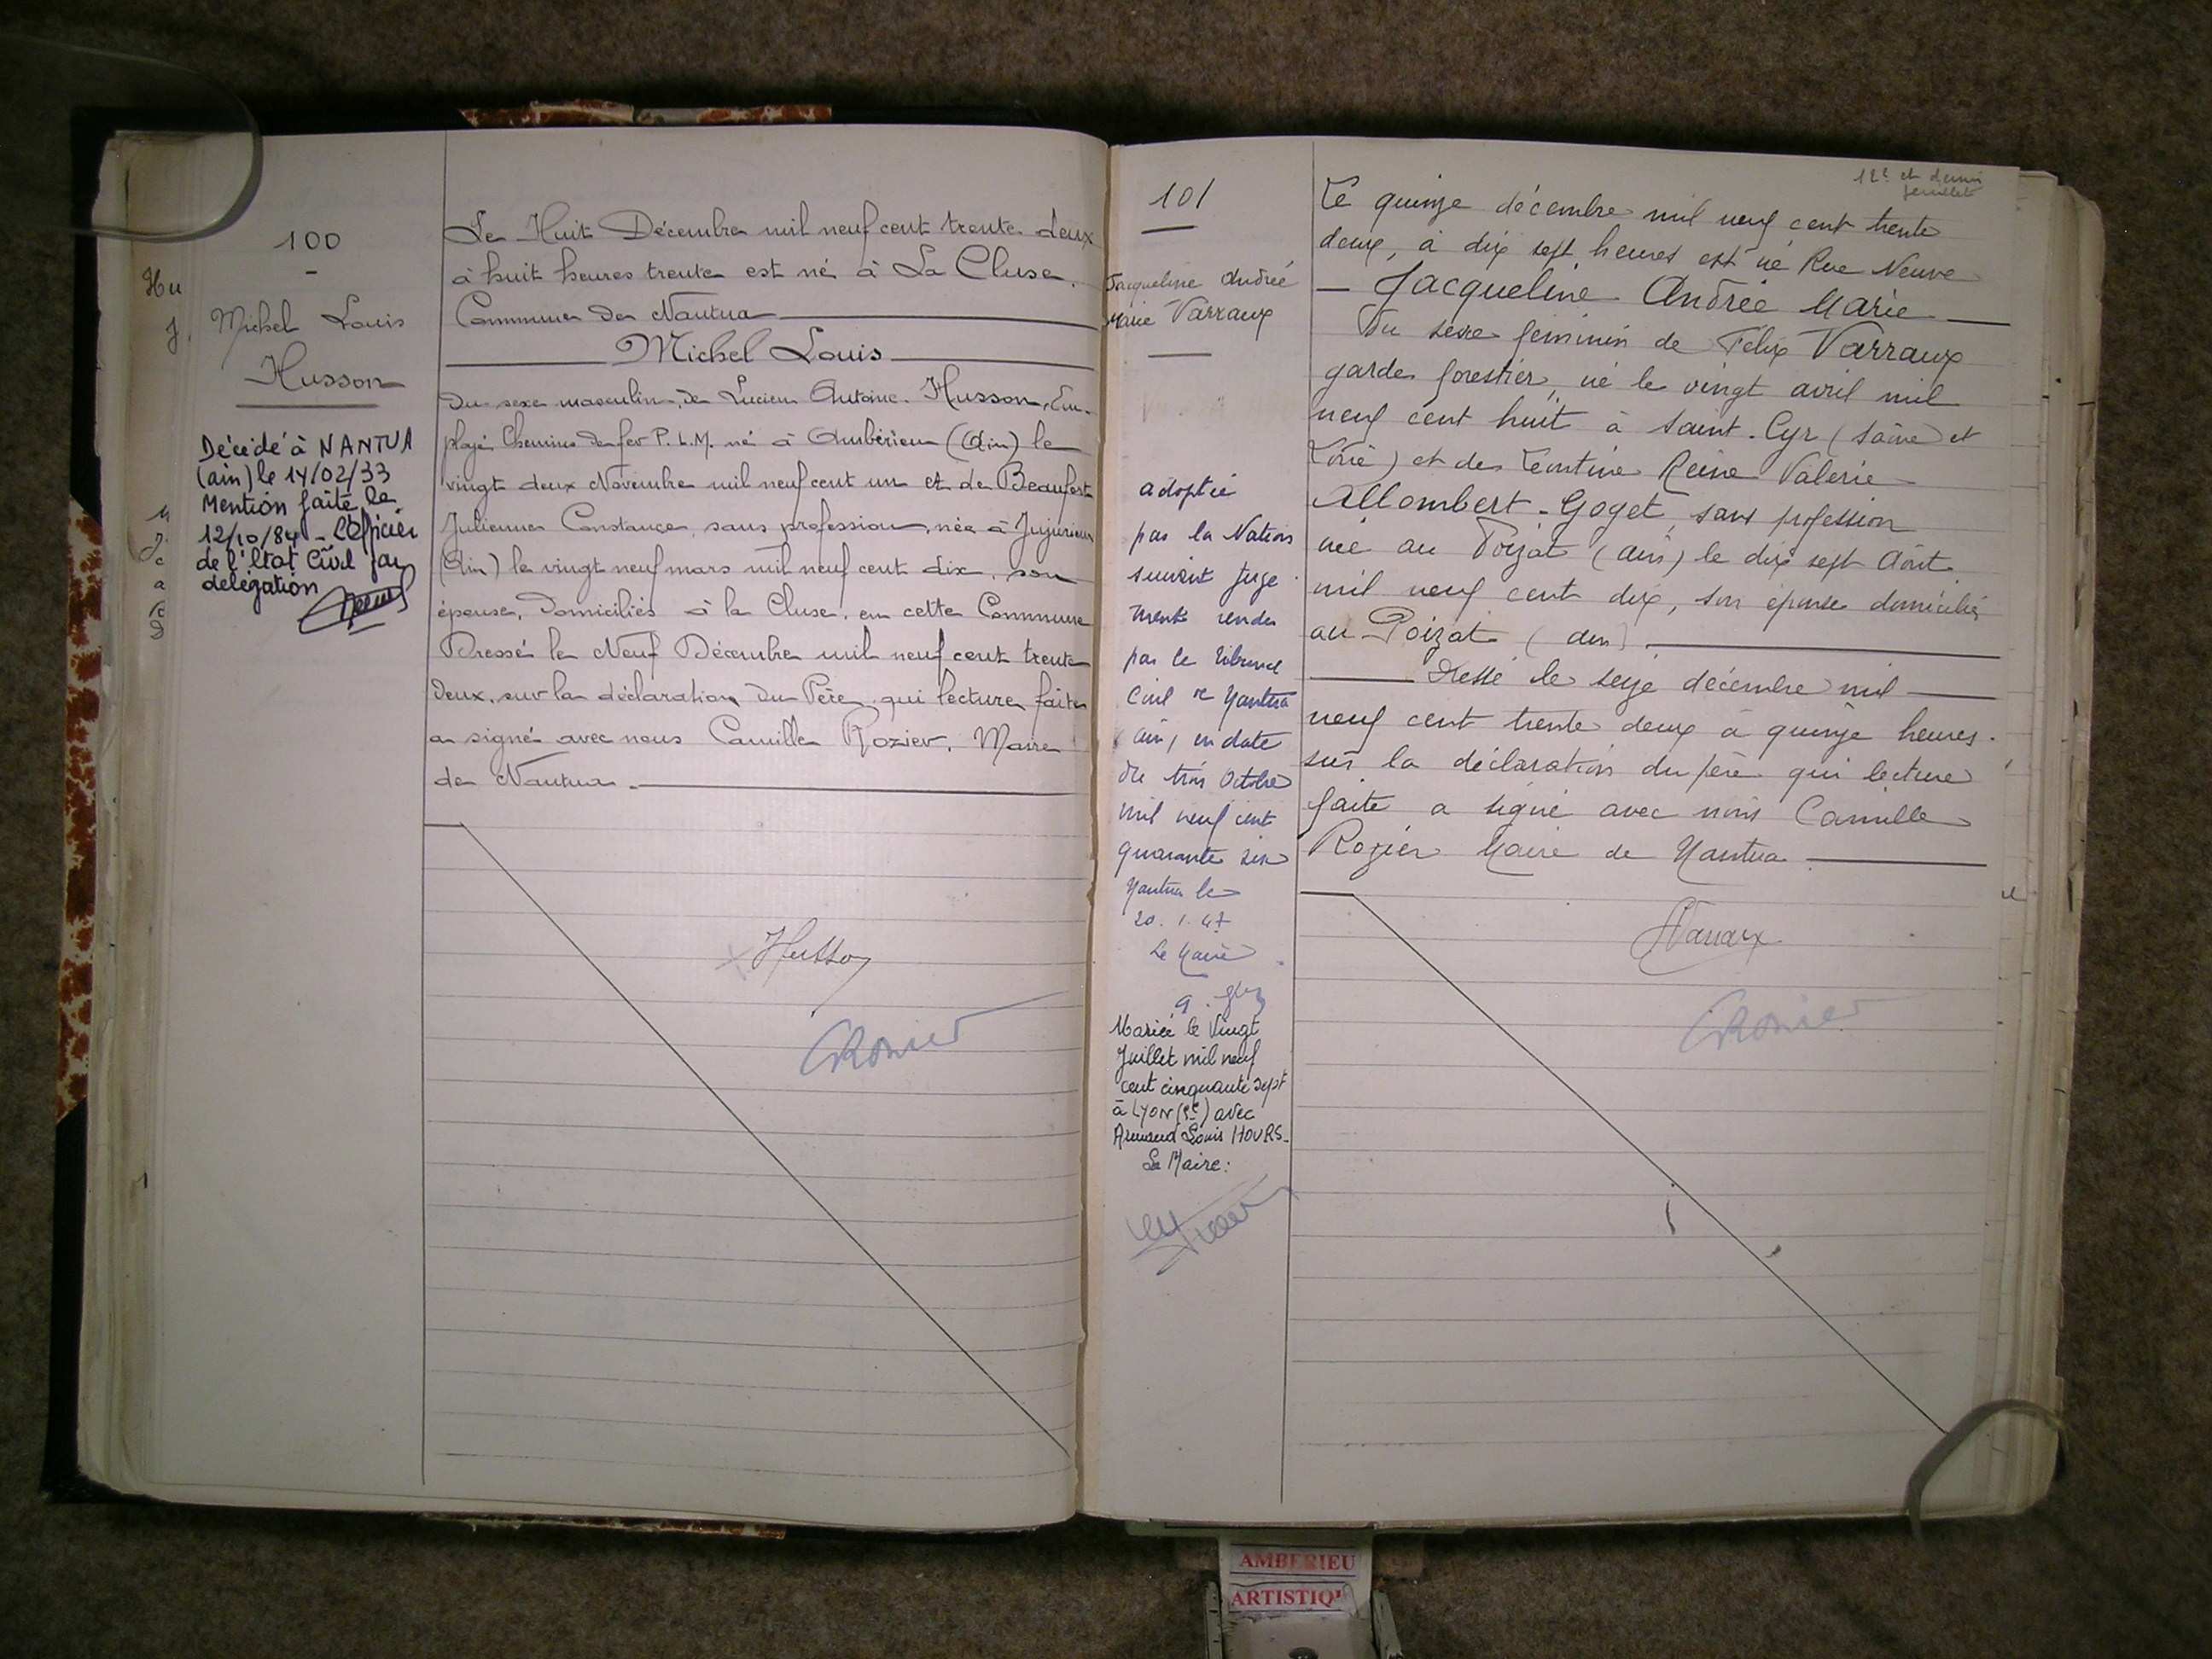 100
Michel Louis
Husson
Décédé à NANTUA
(ain) le 14/02/33
Mention faite le
12/10/84 - L'officier
de l'état Civil par
délégation
Le Huit Décembre mil neuf cent trente deux
à huit heures trente est né à La Cluse,
Commune de Nantua
Michel Louis
Du sexe masculin, de Lucien Antoine Husson, Em-
ployé Chemins de fer P.L.M. né à Ambérieu (Ain) le
vingt deux Novembre mil neuf cent un et de Beaufort
Julienne Constance, sans profession, née à Jujurieux
(Ain) le vingt neuf mars mil neuf cent dix, son
épouse, domiciliés à la Cluse, en cette Commune
Dressé le Neuf Décembre mil neuf cent trente
deux, sur la déclaration du Père qui lecture faite
a signé avec nous Camille Rozier, Maire
de Nantua.
Husson
CRozier
101
Jacqueline Andrée
Marie Varraux
adoptée
par la Nation
suivant juge
ment rendu
par le tribunal
Civil de Nantua
(ain) en date
du trois Octobre
mil neuf cent
quarante six
Nantua le
20.1.47
Le Maire
Mariée le Vingt
Juillet mil neuf
cent cinquante sept
à LYON (5e) avec
Armand Louis HOURS.
Le Maire:
12e et dernier
feuillet
Le quinze décembre mil neuf cent trente
deux, à dix sept heures est né Rue Neuve
— Jacqueline Andrée Marie —
Du sexe féminin de Felix Varraux
garde forestier, né le vingt avril mil
neuf cent huit à Saint-Cyr (Saône et
Loire) et de Leontine Reine Valerie
Allombert-Goget, sans profession
née au Poizat (ain) le dix sept Août
mil neuf cent dix, son épouse domiciliés
au Poizat (ain)
Dressé le seize décembre mil
neuf cent trente deux à quinze heures.
sur la déclaration du père qui lecture
faite a signé avec nous Camille
Rozier Maire de Nantua.
Varraux
CRozier
AMBERIEU
ARTISTIQ